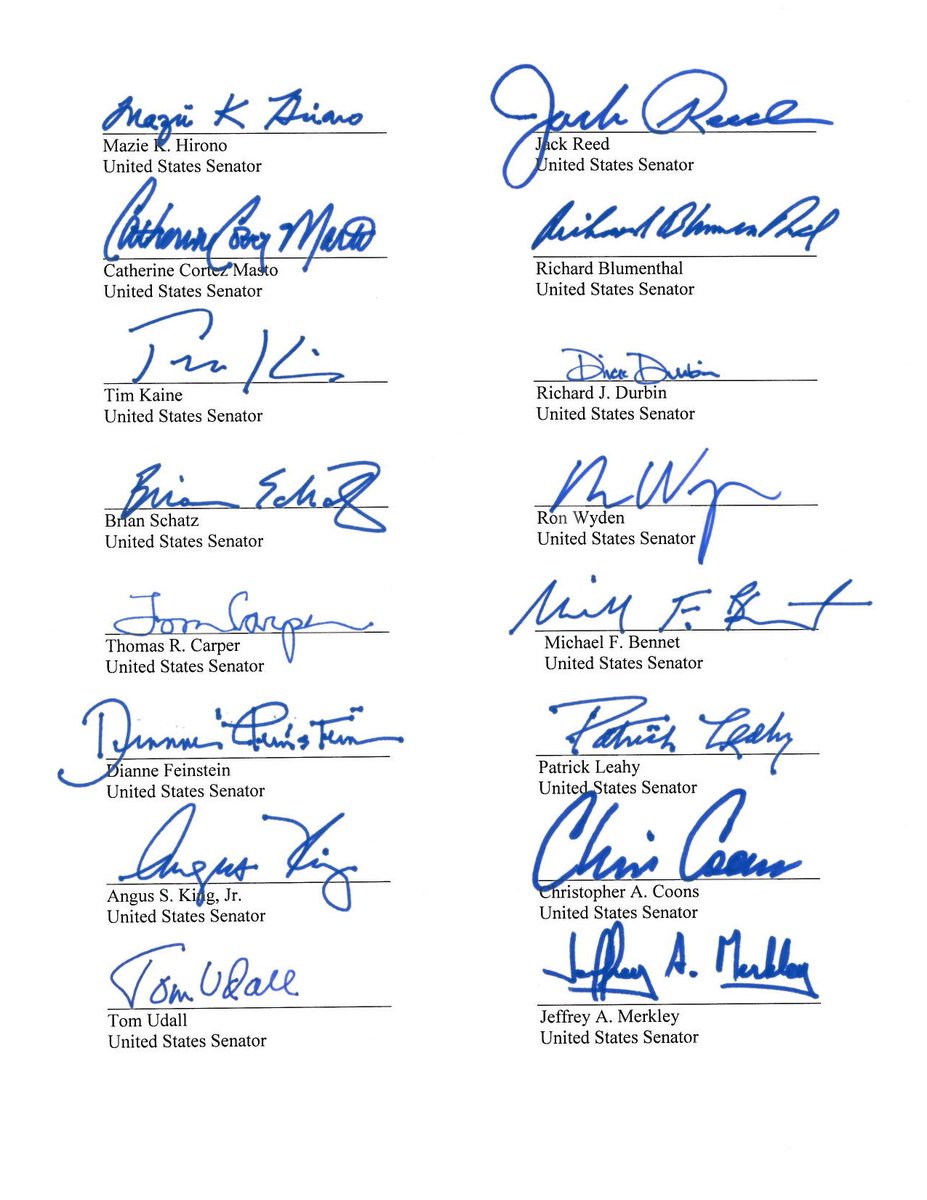 Mazie K Hirono
Mazie K. Hirono
United States Senator
Jack Reed
Jack Reed
United States Senator
Catherine Cortez Masto
Catherine Cortez Masto
United States Senator
Richard Blumenthal
Richard Blumenthal
United States Senator
Tim Kaine
Tim Kaine
United States Senator
Dick Durbin
Richard J. Durbin
United States Senator
Brian Schatz
Brian Schatz
United States Senator
Ron Wyden
Ron Wyden
United States Senator
Tom Carper
Thomas R. Carper
United States Senator
Michael F. Bennet
Michael F. Bennet
United States Senator
Dianne Feinstein
Dianne Feinstein
United States Senator
Patrick Leahy
Patrick Leahy
United States Senator
Angus King
Angus S. King, Jr.
United States Senator
Chris Coons
Christopher A. Coons
United States Senator
Tom Udall
Tom Udall
United States Senator
Jeffrey A. Merkley
Jeffrey A. Merkley
United States Senator